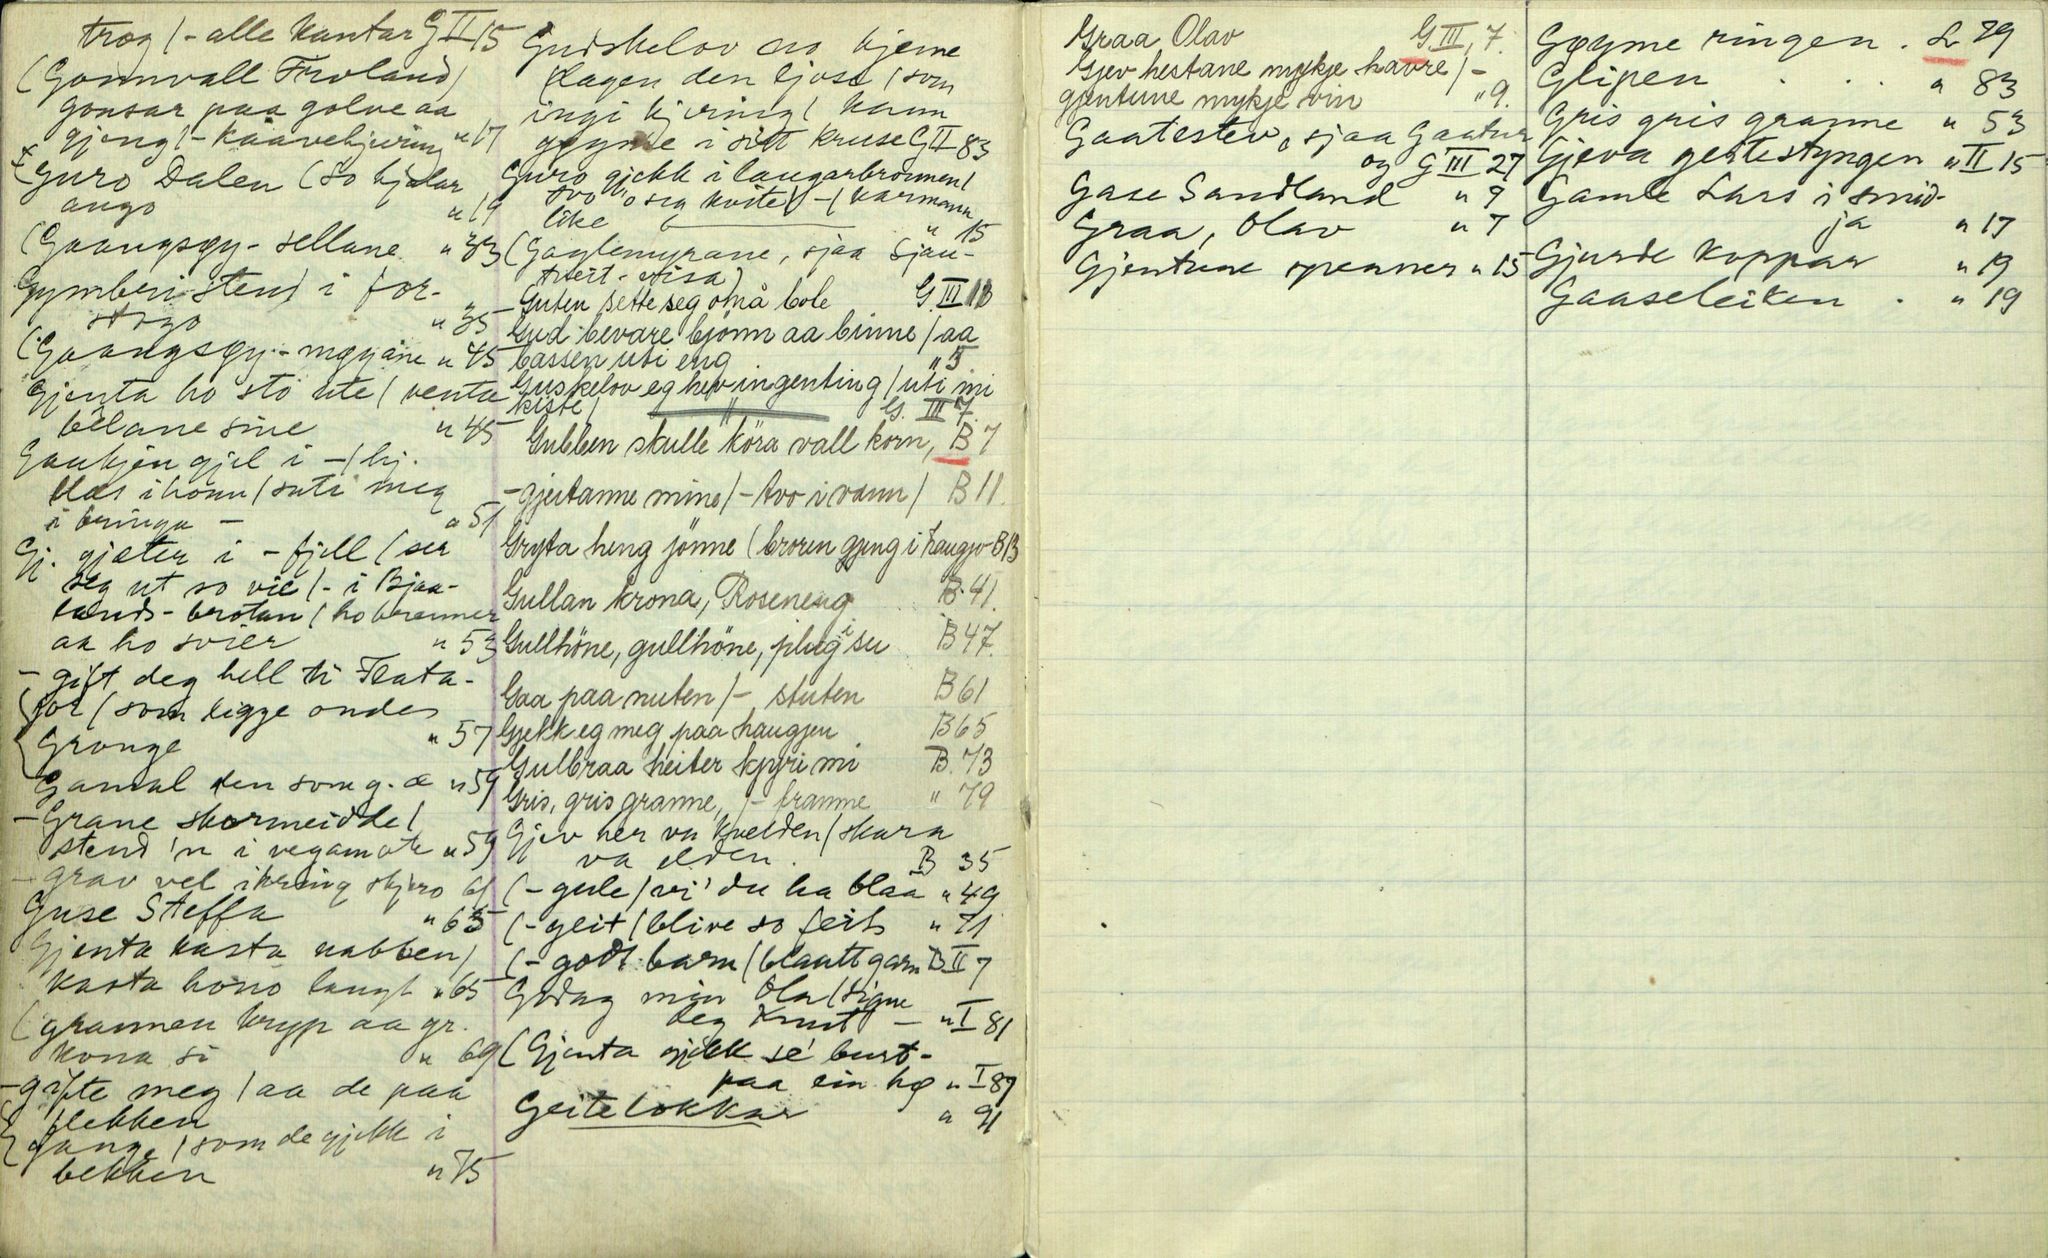 trog / - alle kantar G II 15
(Gonnvall Froland)
gonsar paa golve aa
gjeng / - kaavekjering " 17
Guro Dalen (So kjelar
augo " 19
(Gaangsgy - sellane " 33
Gymberi stend i for-
stogo " 35
(Gaangsgy - møyane " 45
Gjenta ho sto ute / venta
bêlane sine " 45
Gaukjen gjel i - / hj.
/ suti meg
i bringa - " 51
Gj. gjæter i - fjell / ser
seg ut so vie / - i Bjaa-
lands - brotun / ho brenner
aa ho svier " 53
- gift deg hell ti Flata-
bor / som ligge onde
Gronge " 57
Gamal den som g. æ " 59
- Grane skormeidde /
stend 'n i vegamote " 59
- grav vel ikring skjero 61
Guse Steffa " 63
Gjenta kasta nabben /
kasta hono langt " 65
(grannen kryp aa gr.
kona si " 69
- gifte meg / aa de paa
flekken
gange / som de gjekk i
bekken " 75
Gudskelov no kjeme
dagen den ljose / som
ingi kjering / kann
gøyme i sitt kruse G II 83
Guro gjekk i laugarbronnen /
tvo ho seg kvite / - / karmann
like " 15
(Gaglemyrane, sjaa Sjau-
tveit-visa)
Guten sette seg omå bole G. III 13
Gud bevare bjønn aa binne / aa
bassen uti eng " 5
Guskelov eg hev ingenting / uti mi
kiste / " G. III 7.
Gubben skulle köra vall korn, B 7
- gjeitanne mine / - tvo i vann / B 11.
Gryta heng jönne (broren gjeng i haugjo B 13
Gullan krona, Roseneng B. 41.
Gullhöne, gullhöne, plug i su B 47.
Gaa paa nuten / - stuten B 61
Gjekk eg meg paa haugjen B 65
Gulbraa heiter kjyri mi B. 73
Gris, gris granne, / - franne " 79
Gjev her va kvelden / skara
va elden. B 35
(- gule / vi' du ha blaa " 49
(- geit / blive so feit " 71
(- godt barn / blautt garn B II 7
Godag min Ola / signe
deg Knut - " I 81
(Gjenta gjekk se' burt-
paa ein hø " I 89
Geitelokkar " 91
Graa Olav G III, 7.
Gjev hestane mykje havre / -
gjentune mykje vin " 9.
Gaatestev, sjaa Gaatur
og G III 27
Gase Sandland " 9
Graa, Olav " 7
Gjentune spenner " 15
Gøyme ringen . L 79
Glipen . . . " 83
Gris gris granne " 53
Gjeva gestestyngen " II 15
Gamle Lars i smid-
ja " 17
Gjurde Koppar " 19
Gaaseleiken . " 19